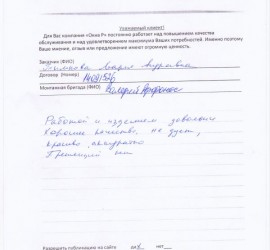 Уважаемый клиент!
Для Вас компания «Окна Р» постоянно работает над повышением качества
обслуживания и над удовлетворением максимума Ваших потребностей. Именно поэтому
Ваше мнение, отзыв или предложения имеют огромную ценность.
Заказчик (ФИО)
Договор (Номер)
Монтажная бригада (ФИО) Валерий
Работой и изделием довольны
Хорошее качество, не дует,
красиво, аккуратно
Претензий нет
Разрешить публикацию на сайте да нет